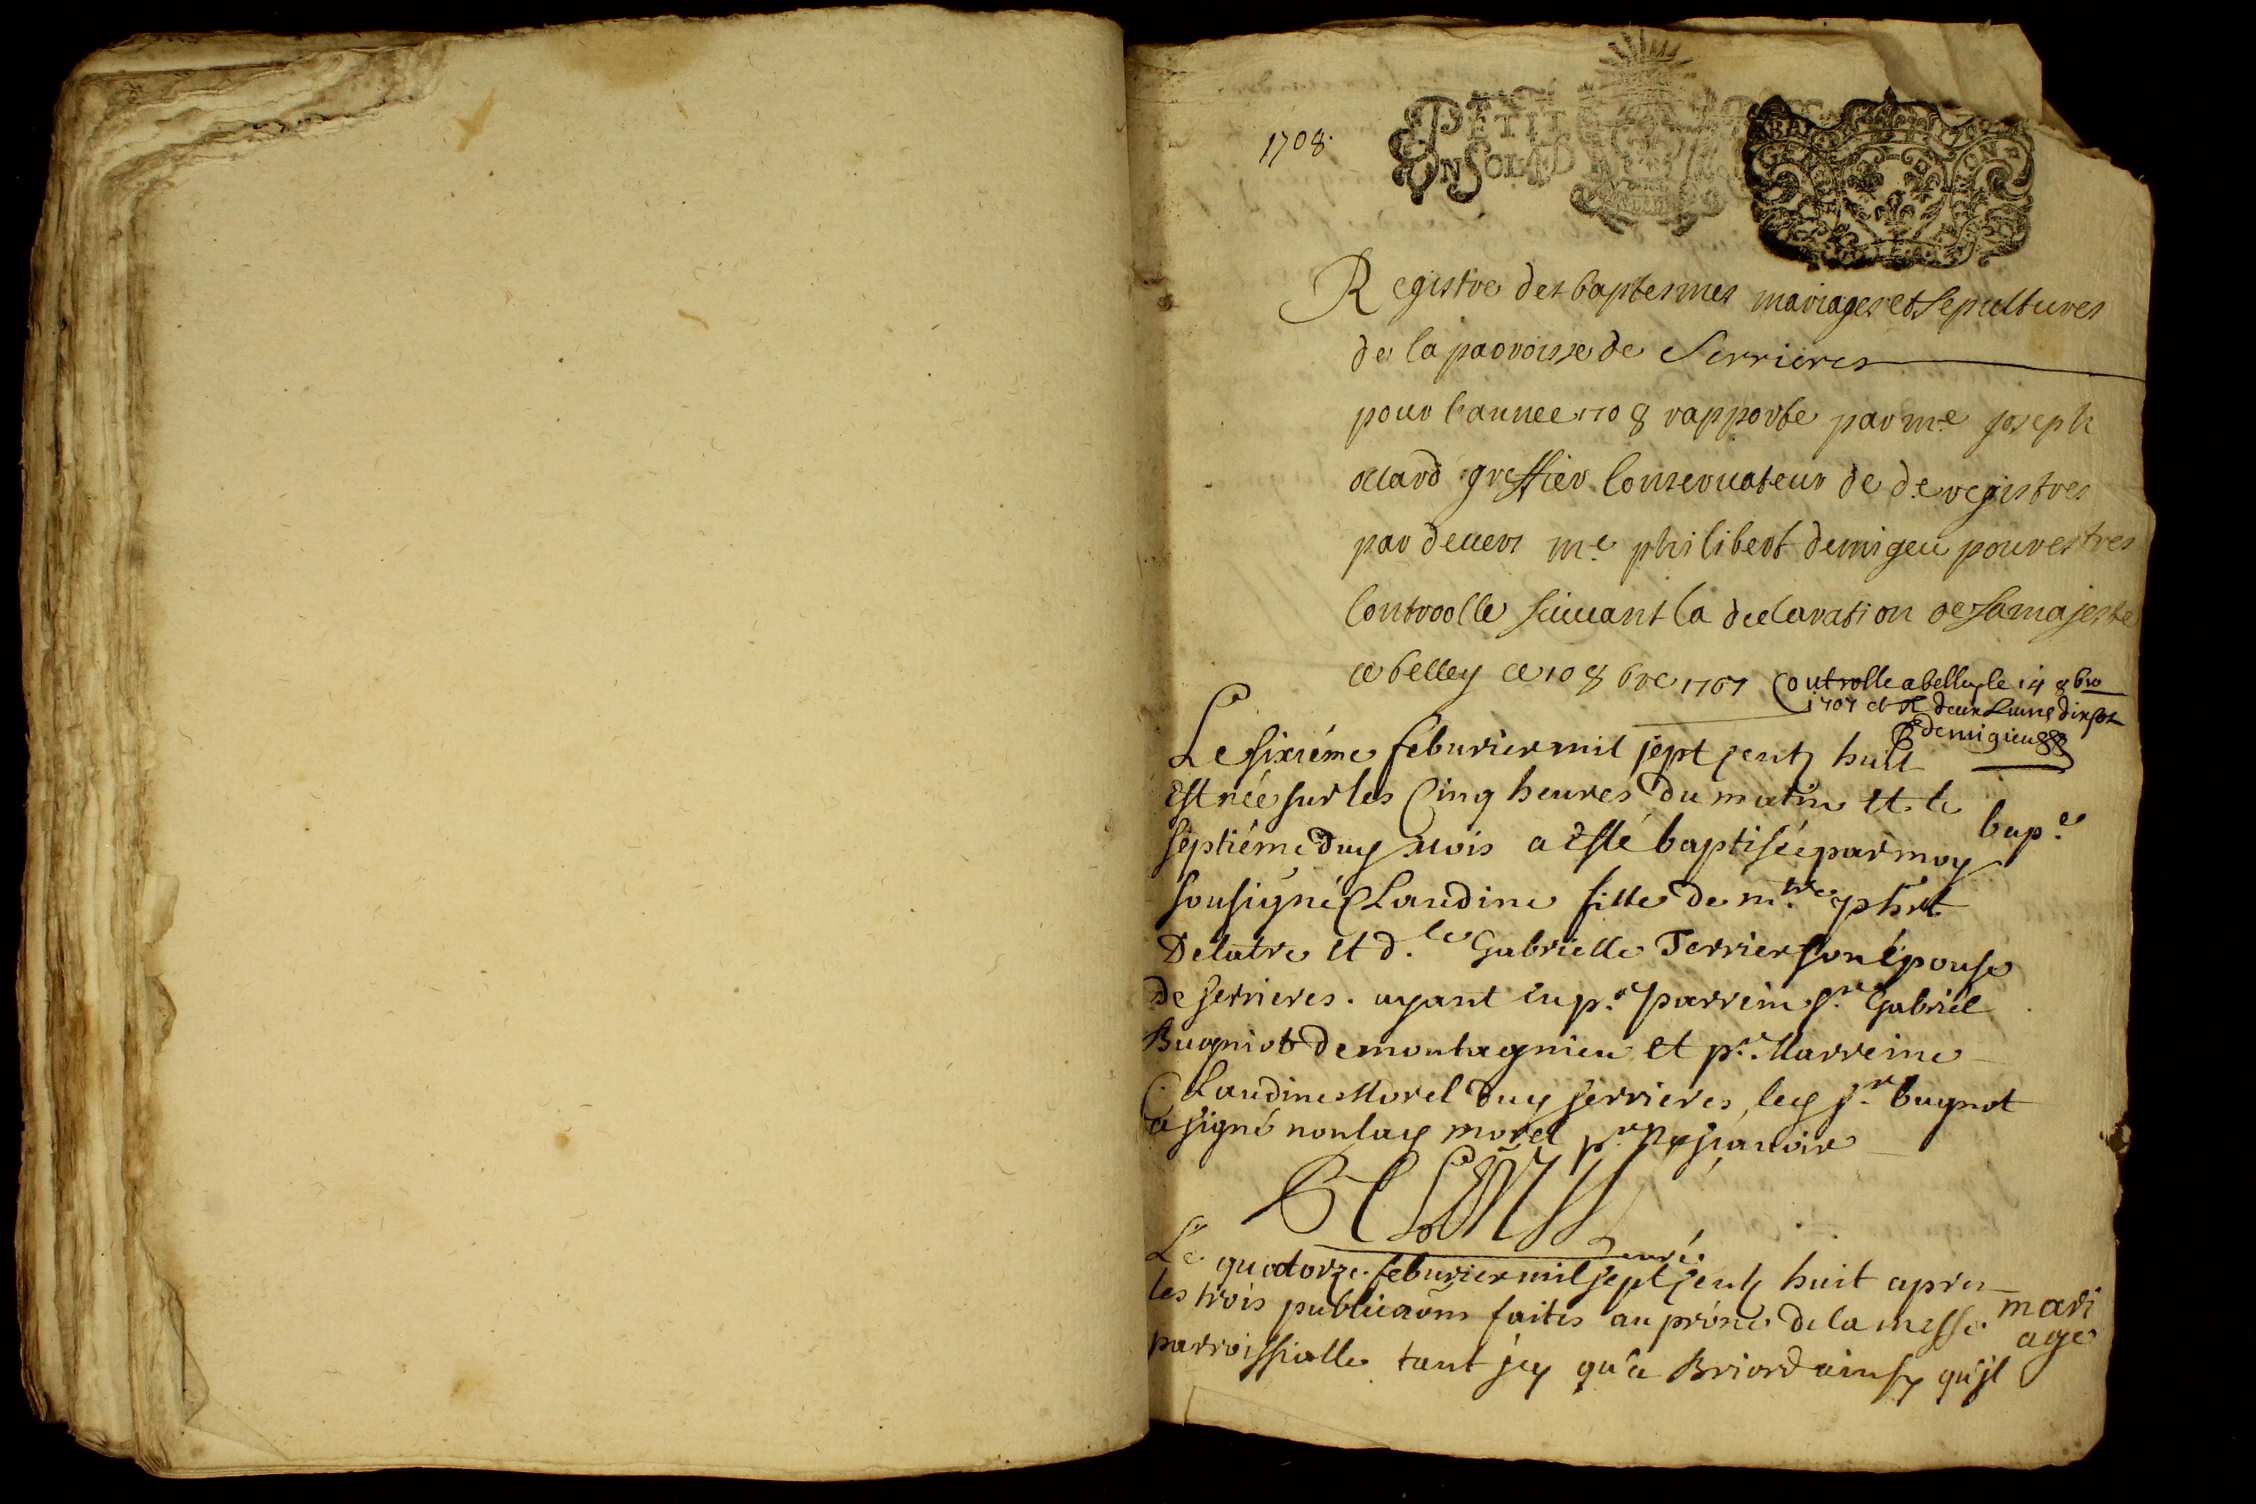 1708.
PETIT
UN SOL
Registre des baptesmes mariages et sepultures
de la parroisse de Serrieres
pour l'annee 1708 rapporte par me joseph
greffier Conservateur de de registres
par devers me philibert demigeu pour estres
Controolle suivant la declaration de sa majeste
a belley ce 10 8bre 1707 Controlle a belley le 14 8bre
1707 et R deux Livres dix sols
Demigieu
Le sixiéme feburier mil sept centz huit
Est née sur les Cinq heures du matin et le
septiéme duy mois a Esté baptisée par moy
bap.e
sousigné Claudine fille de m.tre phrt
Delatre et d.lle Gabrielle Terrier son épouse
de serrieres. ayant eu pr parrein sr Gabriel
Bugniot de montagnieu et pr Marreine
Claudine Morel duy serrieres, ley sr bugnot
a signé non lay morel pr ne sçavoir
curé.
Le quatorze feburier mil sept centz huit apres
les trois publicaõns faites au prône de la messe
mari
age
parroissialle tant jcy qu'a Briord ainsy qu'jl